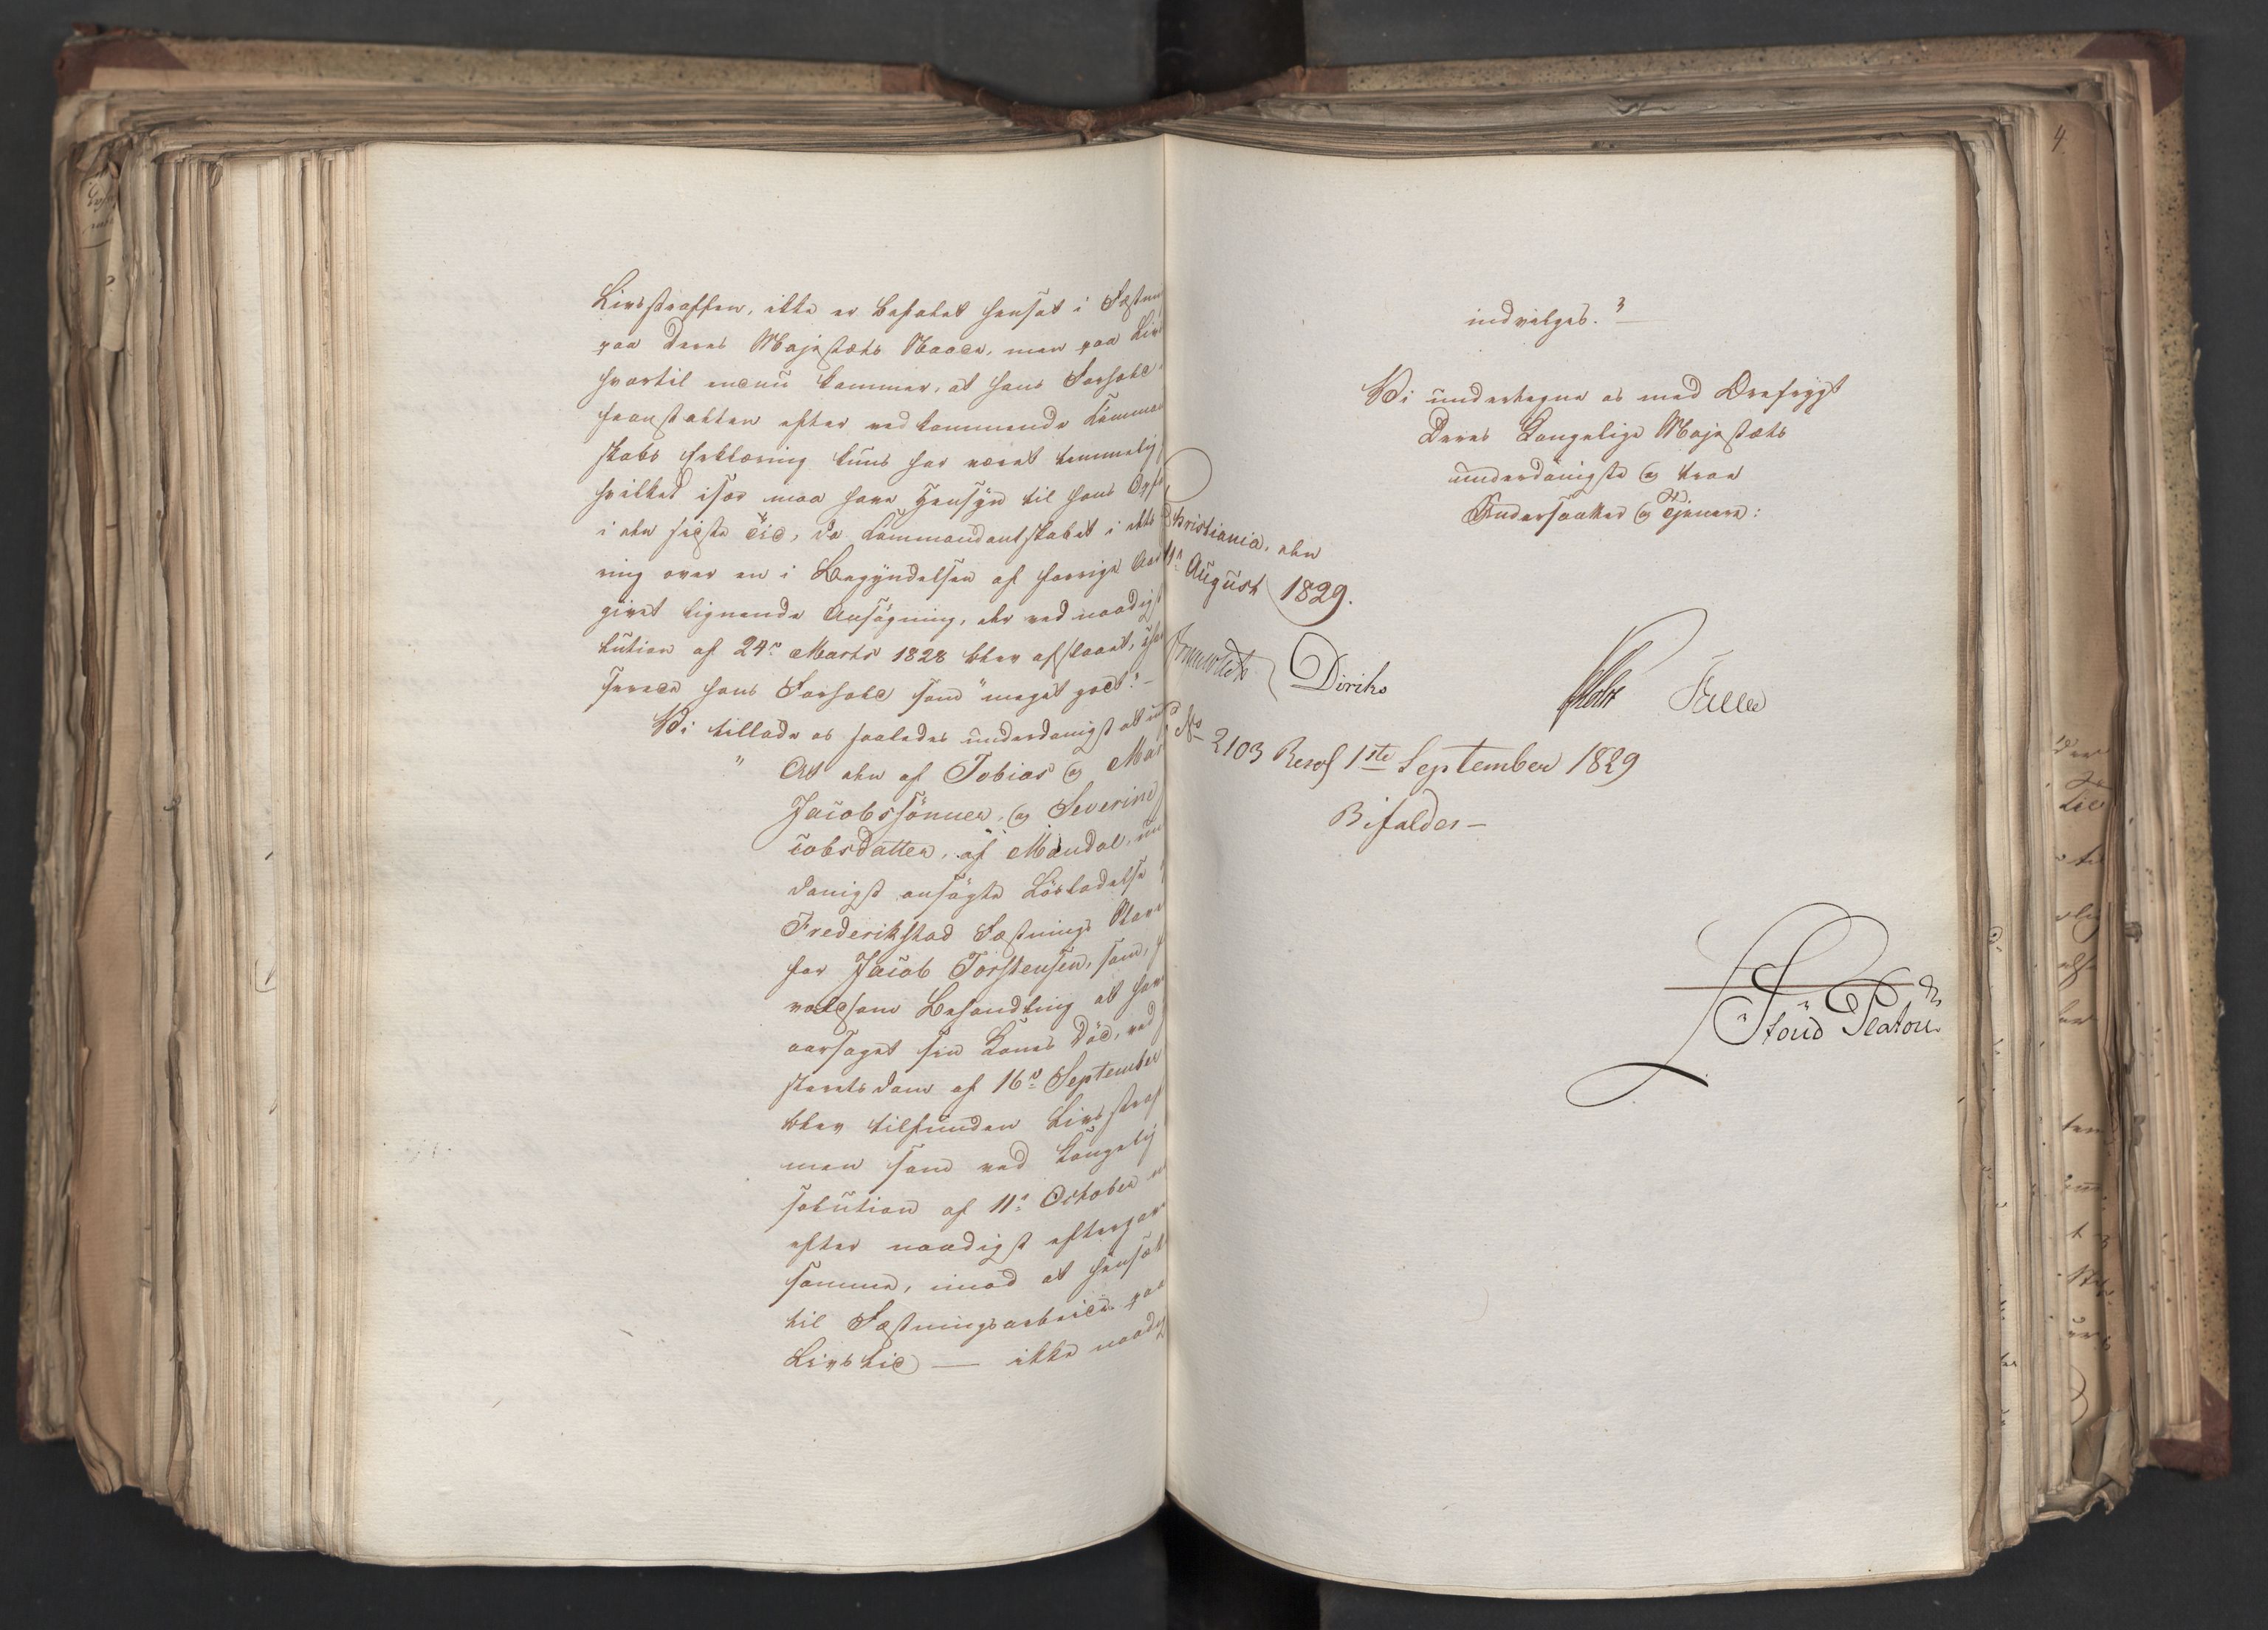 Livsstraffen, ikke er befalet hensat i Fæstn
paa Deres Majestæts Naade, men paa Liv
hvortil endnu kommer, at hans Forhold
Straanstalten efter vedkommende Comman
skabs Erklæring kuns har været temmelig
hvilket især maa have Hensyn til hans Opf
i den sidste Tid, da Commandantskabet i dets
ring over en i Begyndelsen af forrige Aar
givet lignende Ansøgning, der ved naadigs
lution af 24de Marts 1828 blev afslaaet,
hans Forhold som "meget godt". —
Vi tillade os saaledes underdanigst at ind
" At den af Tobias og Mar
Jacobssønner, og Severine
cobsdatter, af Mandal, un
danigst ansøgte Løsladelse
Frederikstad Fæstnings Slave
for Jacob Torstensen, som,
voldsom Behandling at have
aarsaget sin Kones Død, ved
steretsdom af 16de September
blev tilfunden Livsstraf
men som ved Kongelig
solution af 11te October
efter naadigst eftergav
samme, imod at hensæt
til Fæstningsarbeide paa
Livstid — ikke naadig
4.
indvilges. "
Vi undertegne os med Ærefrygt
Deres Kongelige Majestæts
underdanigste og troe
Undersaatter og Tjenere:
Christiania, den
August 1829.
Diriks
Holst
Falsen
No 2103 Resol 1ste September 1829
Bifaldes —
Stoud Platou